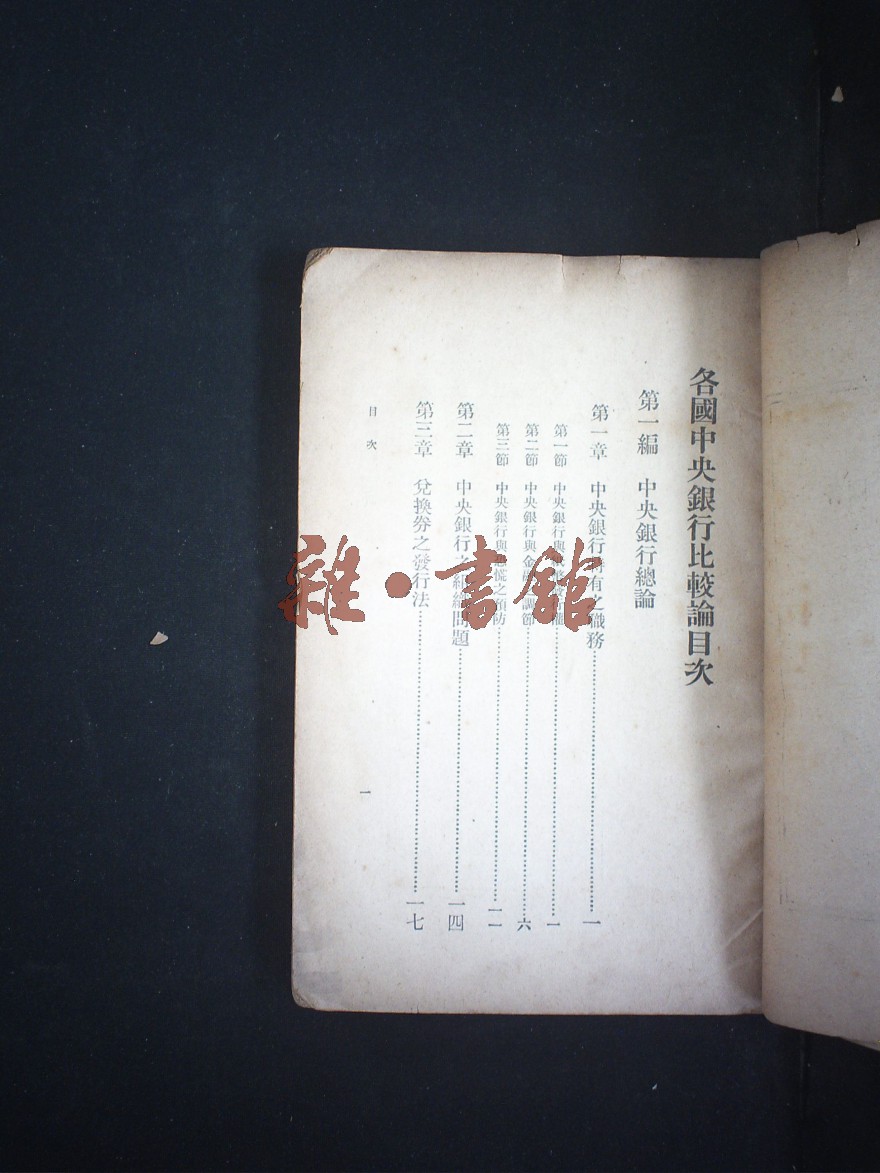 各國中央銀行比較論目次
第一編 中央銀行總論
第一章 中央銀行有之職務……一
第一節 中央銀行與……一
第二節 中央銀行與金調節……六
第三節 中央銀行與恐慌之預防……一一
第二章 中央銀行之組織問題……一四
第三章 兌換券之發行法……一七
目次
一
雜·書館